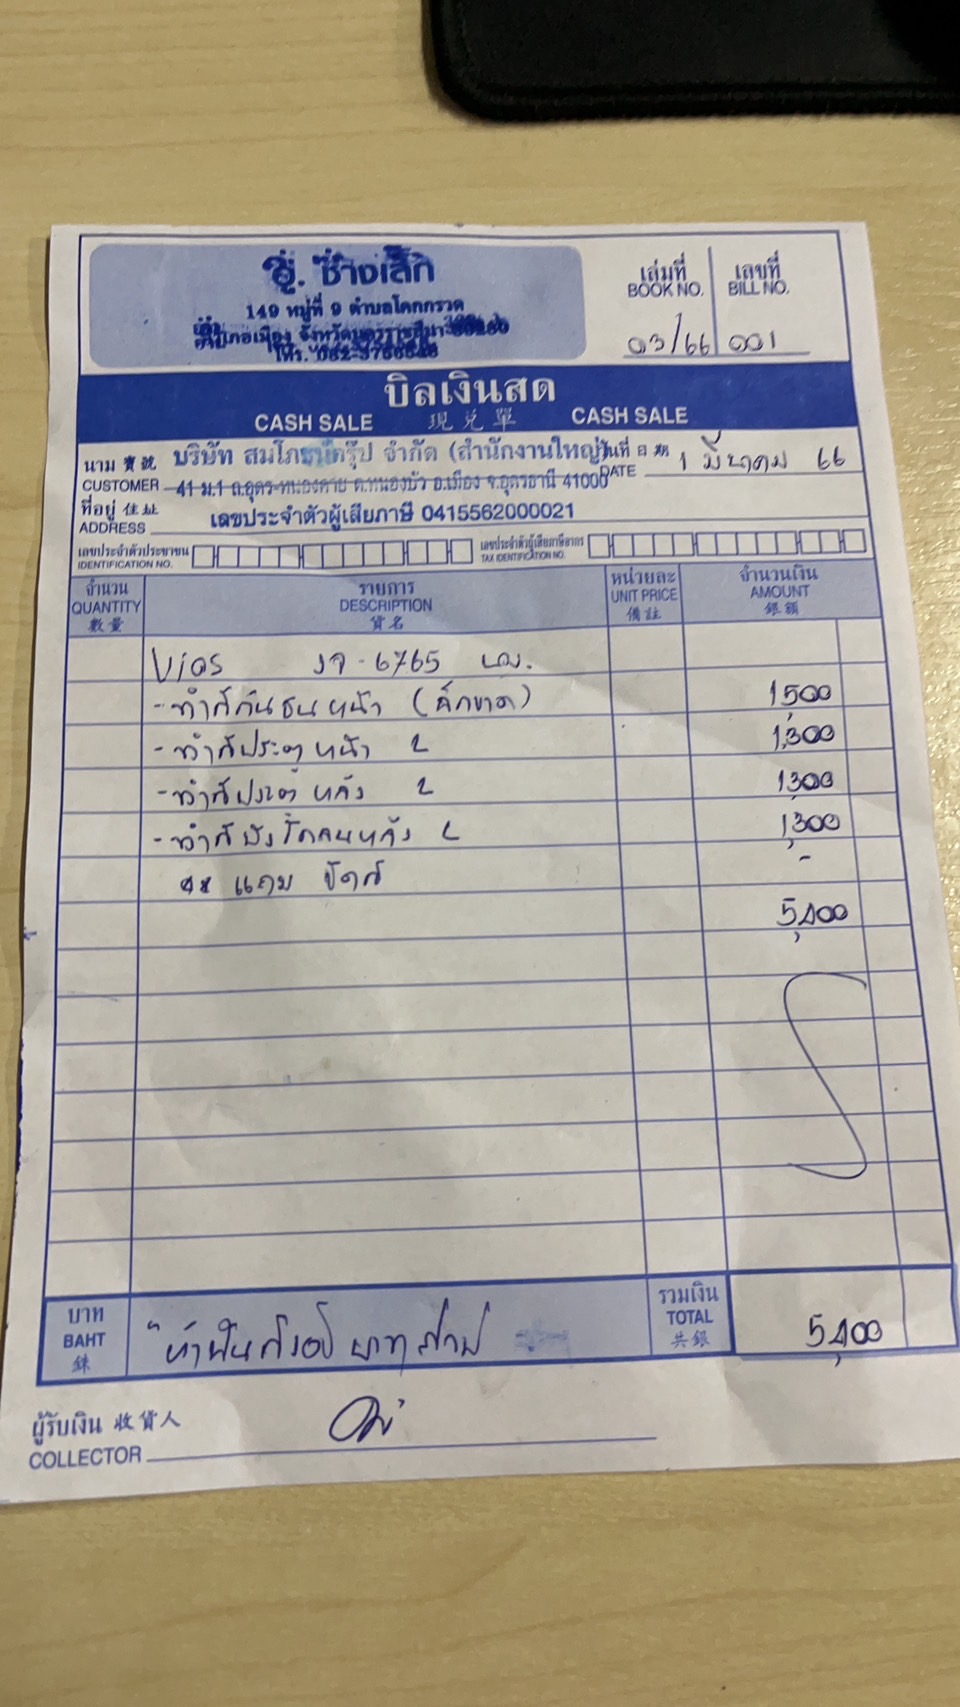 อู่. ช่างเล็ก
149 หมู่ที่ 9 ตำบลโคกกรวด
อำเภอเมือง จังหวัดนครราชสีมา
โทร.
เล่มที่ เลขที่
BOOK NO. BILL NO.
03/66 001
บิลเงินสด
CASH SALE 現兑單 CASH SALE
นาม 寶號 บริษัท สมโภชน์กรุ๊ป จำกัด (สำนักงานใหญ่) วันที่ 日期 1 มีนาคม 66
CUSTOMER 41 ม.1 ถ.อุดร-หนองคาย ต.หนองบัว อ.เมือง จ.อุดรธานี 41000 DATE
ที่อยู่ 住址 เลขประจำตัวผู้เสียภาษี 0415562000021
ADDRESS
เลขประจำตัวประชาชน เลขประจำตัวผู้เสียภาษีอากร
IDENTIFICATION NO. TAX IDENTIFICATION NO.
จำนวน รายการ หน่วยละ จำนวนเงิน
QUANTITY DESCRIPTION UNIT PRICE AMOUNT
數量 貨名 備註 銀額
Vios 6765
- ทำสีกันชนหน้า 1,500
- ทำสีประตูหน้า L 1,300
- ทำสีประตูหลัง L 1,300
- ทำสีบังโคลนหลัง L 1,300
** แถม ขัดสี -
5,400
บาท รวมเงิน
BAHT ห้าพันสี่ร้อยบาทถ้วน TOTAL 5,400
銖 共銀
ผู้รับเงิน 收貨人
COLLECTOR